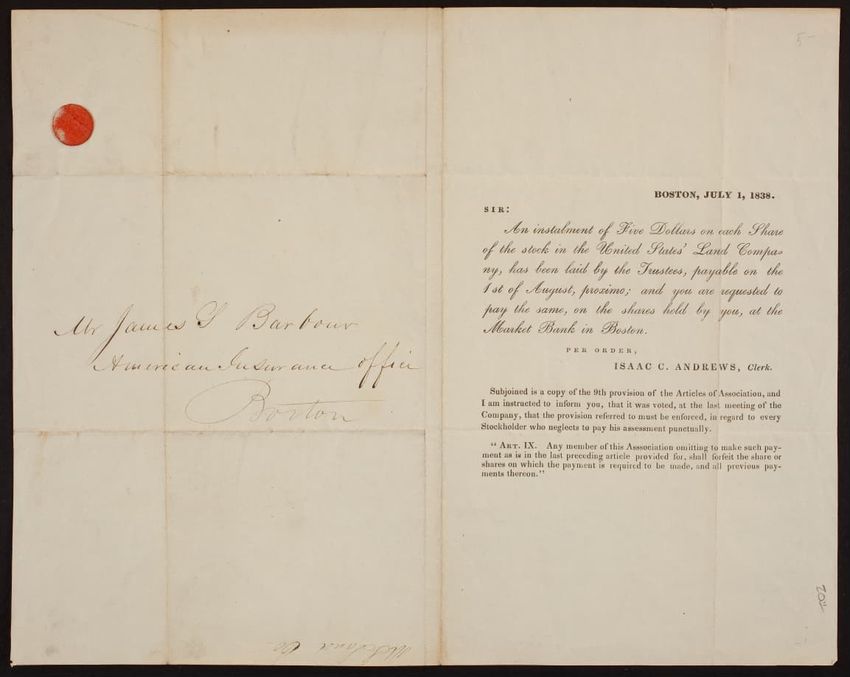 Mr James S Barbour
American Insurance office
Boston
5-
BOSTON, JULY 1, 1838.
SIR:
An instalment of Five Dollars on each Share
of the stock in the United States' Land Compa-
ny, has been laid by the Trustees, payable on the
1st of August, proximo; and you are requested to
pay the same, on the shares held by you, at the
Market Bank in Boston.
PER ORDER,
ISAAC C. ANDREWS, Clerk.
Subjoined is a copy of the 9th provision of the Articles of Association, and
I am instructed to inform you, that it was voted, at the last meeting of the
Company, that the provision referred to must be enforced, in regard to every
Stockholder who neglects to pay his assessment punctually.
"ART. IX. Any member of this Asssociation omitting to make such pay-
ment as is in the last preceding article provided for, shall forfeit the share or
shares on which the payment is required to be made, and all previous pay-
ments thereon."